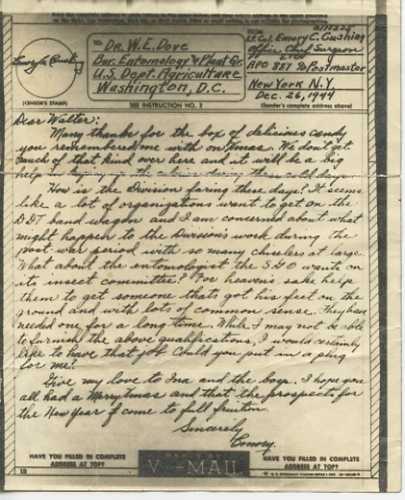 TO:
Dr. W.E. Dove
Bur. Entomology & Plant Qr.
U.S. Dept. Agriculture
Washington, D.C.
FROM
Lt. Col. Emory C. Cushing
Office Chief Surgeon
ETO
APO 887 % Postmaster
New York N.Y.
Dec. 26, 1944
(CENSOR'S STAMP)
SEE INSTRUCTION NO. 2
(Sender's complete address above)
Dear Walter:
Many thanks for the box of delicious candy
you remembered me with on Xmas. We don't get
much of that kind over here and it will be a big
help in up the calories during these cold days.
How is the Division faring these days? It seems
like a lot of organizations want to get on the
DDT band wagon and I am concerned about what
might happen to the Division's work during the
post war period with so many chiselers at large.
What about the entomologist the SGO wants on
its insect committee? For heaven's sake help
them to get someone thats got his feet on the
ground and with lots of common sense. They have
needed one for a long time. While I may not be able
to furnish the above qualifications, I would certainly
like to have that job. Could you put in a plug
for me?
Give my love to Ina and the boys. I hope you
all had a Merry Xmas and that the prospects for
the New Year come to full fruition.
Sincerely
Emory.
HAVE YOU FILLED IN COMPLETE
ADDRESS AT TOP?
V-MAIL
HAVE YOU FILLED IN COMPLETE
ADDRESS AT TOP?